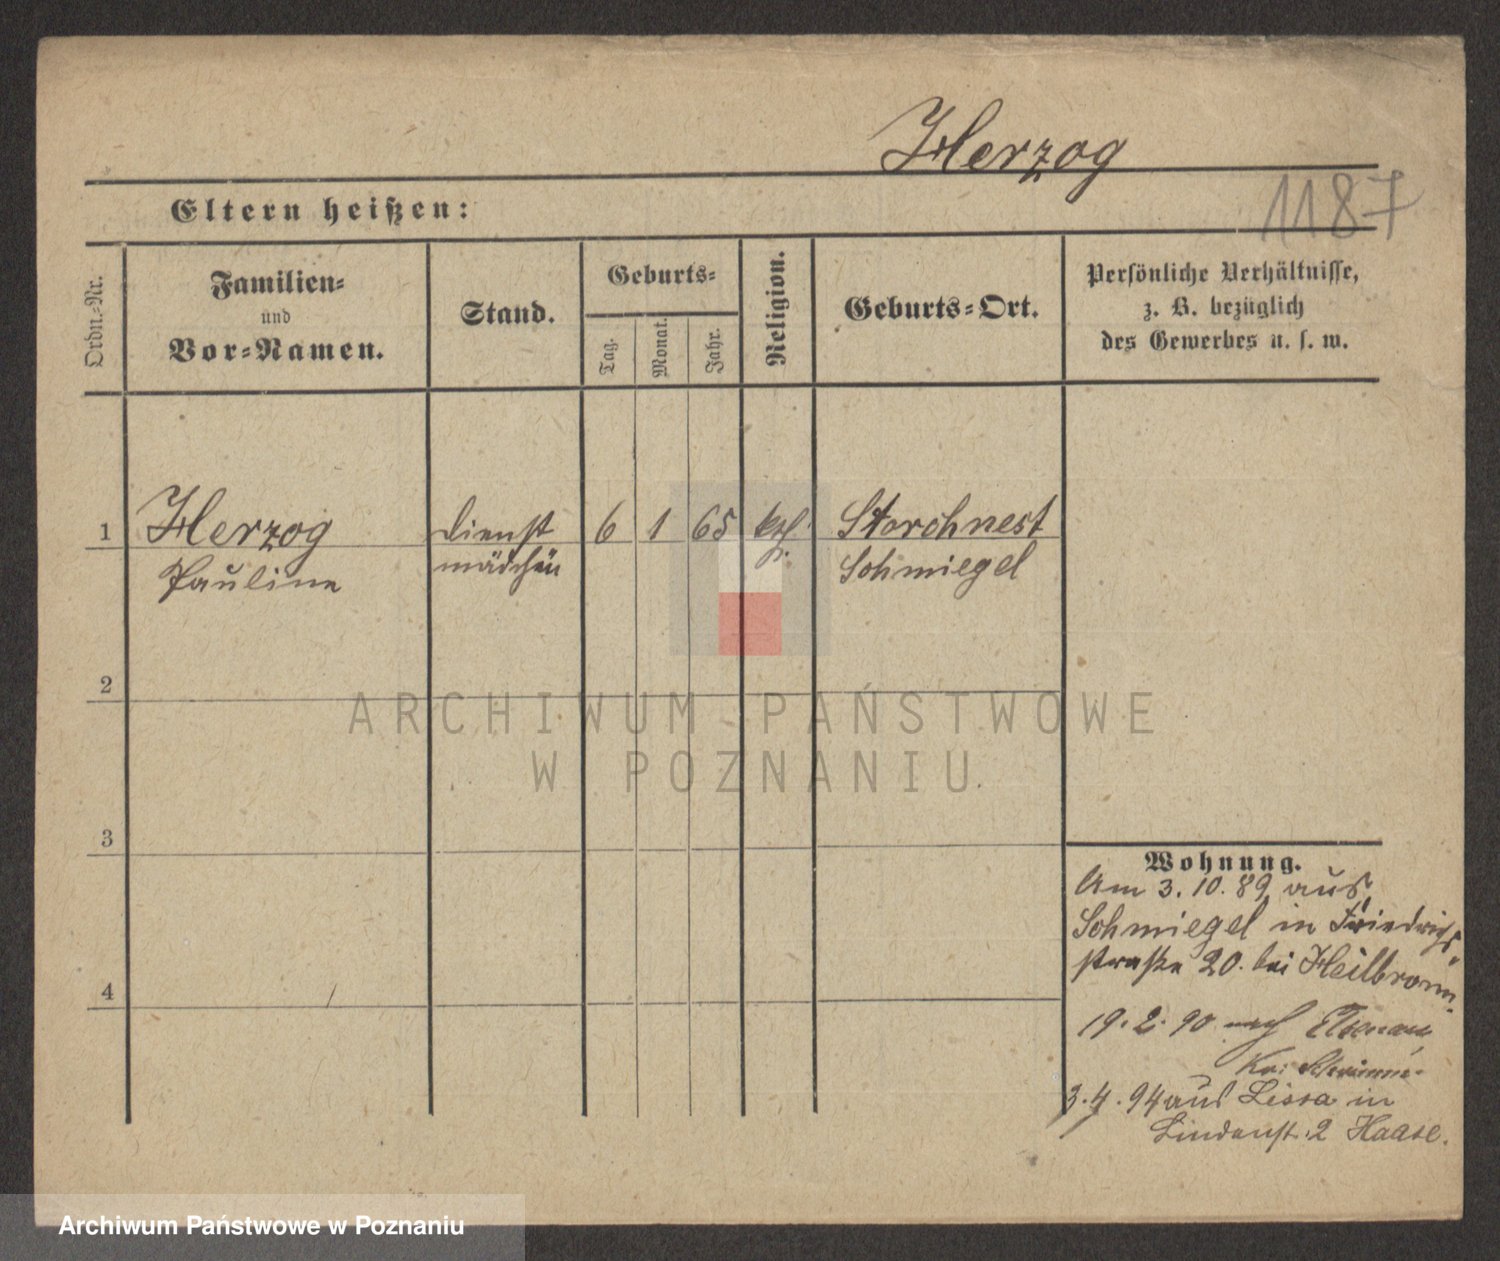 Herzog
1187
Eltern heißen:
Ordn.-Nr.
Familien-
und
Vor-Namen.
Stand.
Geburts-
Tag.
Monat.
Jahr.
Religion.
Geburts-Ort.
Persönliche Verhältnisse,
z. B. bezüglich
des Gewerbes u. s. w.
1 Herzog Dienst 6 1 65 Storchnest
Pauline mädchen Schmiegel
2
3
4
Wohnung.
Am 3.10.89 aus
Schmiegel in Friedrichs-
straße 20. bei Heilbronn.
19.2.90 nach
Kr:
3.4.94 aus Lissa in
Lindenst. 2 Haase.
ARCHIWUM PAŃSTWOWE
W POZNANIU
Archiwum Państwowe w Poznaniu